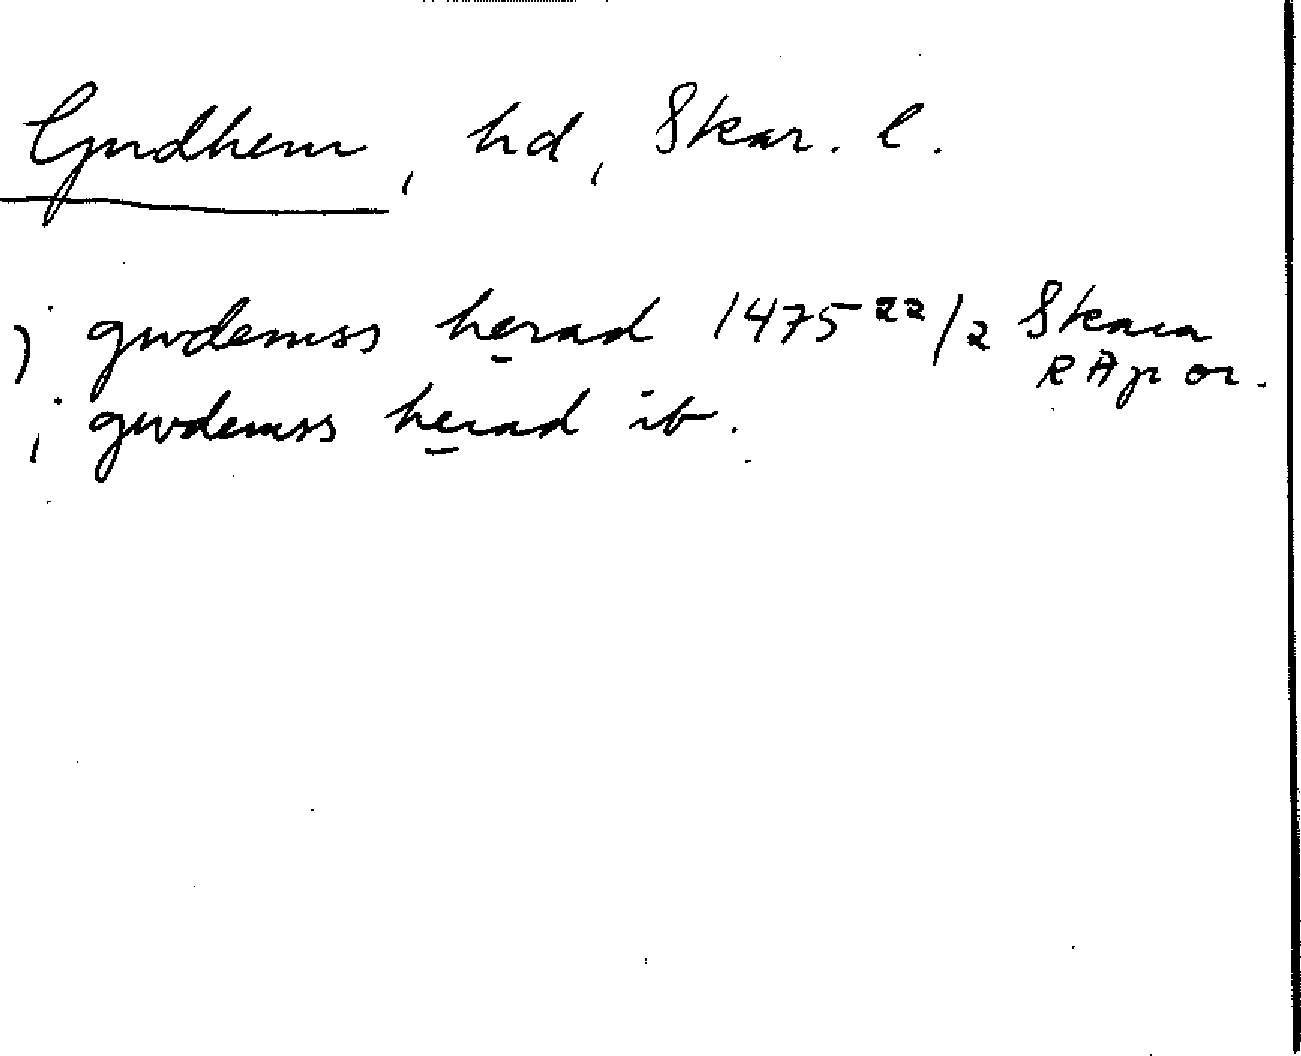 Gudhem, hd, Skar. l.
j gwdemss herad 1475 22/2 Skara
RAp or.
i gwdemss herad ib.